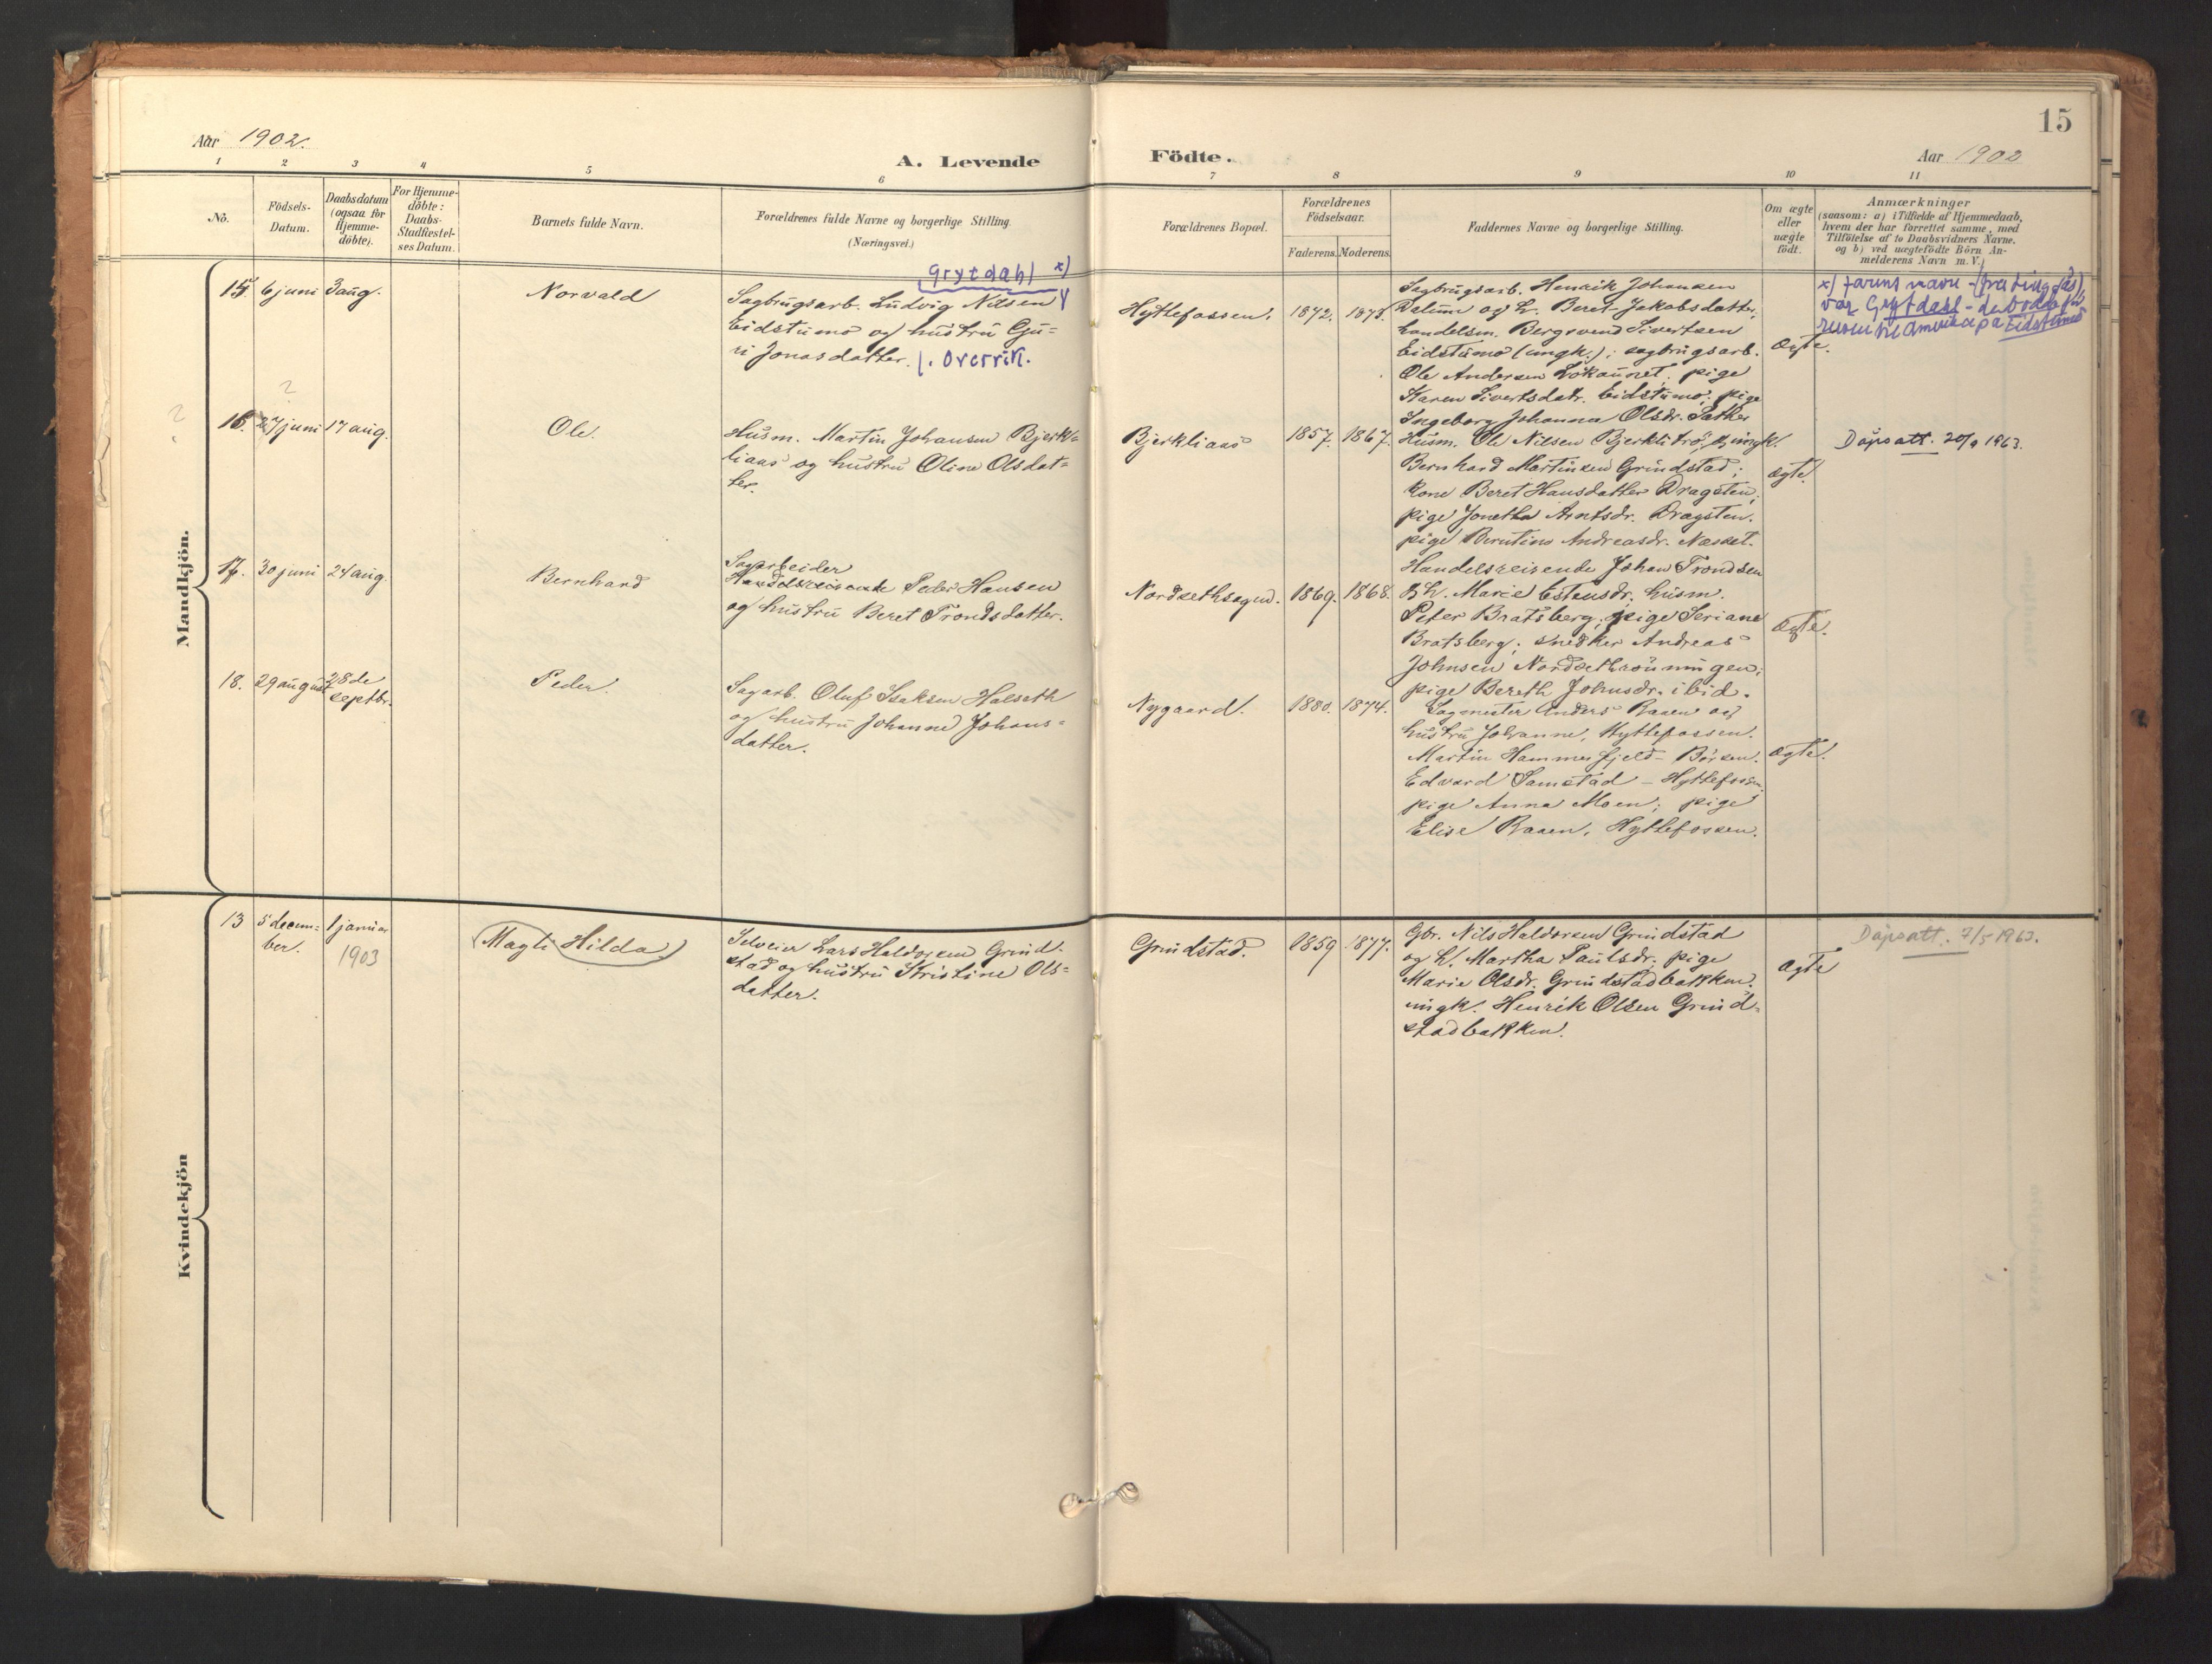 15
Aar 1902.
A. Levende
Födte.
Aar 1902
1 2 3 4 5 6 7 8 9 10 11
No.
Födsels-
Datum.
Daabsdatum
(ogsaa for
Hjemme-
döbte).
For Hjemme-
döbte:
Daabs-
Stadfestel-
ses Datum.
Barnets fulde Navn.
Forældrenes fulde Navne og borgerlige Stilling.
(Næringsvei.)
Forældrenes Bopæl.
Forældrenes
Födselsaar.
Faderens. Moderens.
Faddernes Navne og borgerlige Stilling.
Om ægte
eller
uægte
födt.
Anmærkninger
(saasom: a) i Tilfælde af Hjemmedaab,
hvem der har forrettet samme, med
Tilföielse af to Daabsvidners Navne.
og b) ved uægtefödte Börn An-
melderens Navn m. V.)
Mandkjön.
15. 6 juni 3 aug.
Norvald
Grytdahl x)
Sagbrugsarb. Ludvig Nilsen
Eidstumo og hustru Gu-
ri Jonasdatter. f. Overvik.
Hyttefossen. 1872. 1873.
Sagbrugsarb. Henrik Johansen
Dalum og h. Beret Jakobsdatter,
handelsm. Bergsvend Sivertsen
Eidstumo (ungk.); sagbrugsarb.
Ole Andersen Lökaunet; pige
Karen Sivertsdatr. Eidstumo; pige
Ingeborg Johanna Olsdr. Sather
ægte.
x) farens navn
var Grytdahl
Amerika på Eidstumo
?
?
16. 27 juni 17 aug.
Ole.
Husm. Martin Johansen Bjerk-
liaas og hustru Oline Olsdat-
ter.
Bjerkliaas 1857. 1867.
Husm. Ole Nilsen Bjerklitrö, ungk.
Bernhard Martinsen Grindstad;
kone Beret Hansdatter Dragsten;
pige Jonetha Arntsdr. Dragsten.
pige Berntine Andreasdr. Næsset.
ægte.
Dåpsatt. 20/9 1963.
17. 30 juni 24 aug.
Bernhard
Sagarbeider
Handelsreisende Peder Hansen
og hustru Beret Trondsdatter.
Nordsethsogn. 1869. 1868.
Handelsreisende Johan Trondsen
h. Marie Estensdr. husm.
Peter Bratsberg; pige Seriane
Bratsberg; snedker Andreas
Johnsen Nordsethrönningen;
pige Bereth Johnsdr. ibid.
ægte.
18. 29 august 28de
septbr.
Peder.
Sagarb. Oluf Isaksen Halseth
og hustru Johanne Johans-
datter.
Nygaard. 1880. 1874.
Sagmester Anders Raaen og
hustru Johanne, Hyttefossen.
Martin Hammerfjeld - Börsen.
Edvard Samstad - Hyttefossen,
pige Anna Moen; pige
Elise Raaen, Hyttefossen.
ægte.
Kvindekjön
13 5 decem-
ber. 1 januar
1903
Magli Hilda
Selveier Lars Haldorsen Grind-
stad og hustru Kristine Ols-
datter.
Grindstad. 1859 1877.
Gbr. Nils Haldorsen Grindstad
og h. Martha Paulsdr; pige
Marie Olsdr. Grindstadbakken.
ungk. Henrik Olsen Grind-
stadbakken.
ægte
Dåpsatt. 7/5 1963.